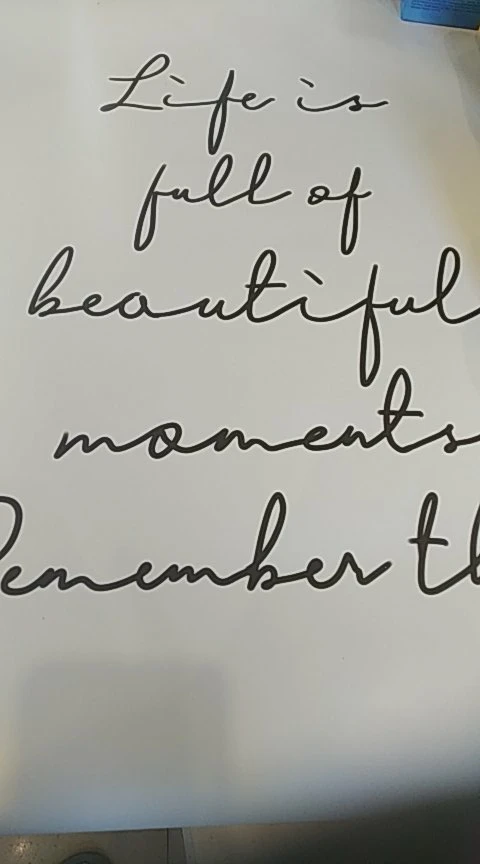 Life is
full of
beautiful
moments
Remember